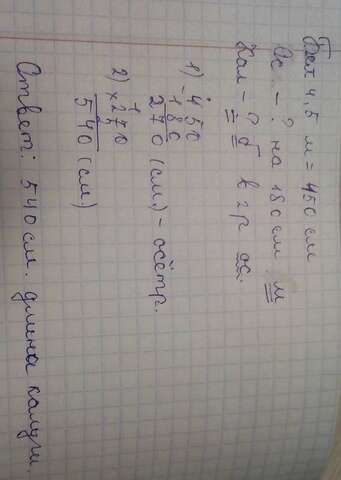 Бел 4,5 м = 450 см
Ос. - ? на 180 см м
Кал - ? б в 2 р ос.
1) 450
- 180
270 (см.) - осётр.
2) 270
× 2
540 (см)
Ответ: 540 см. длина калуги.